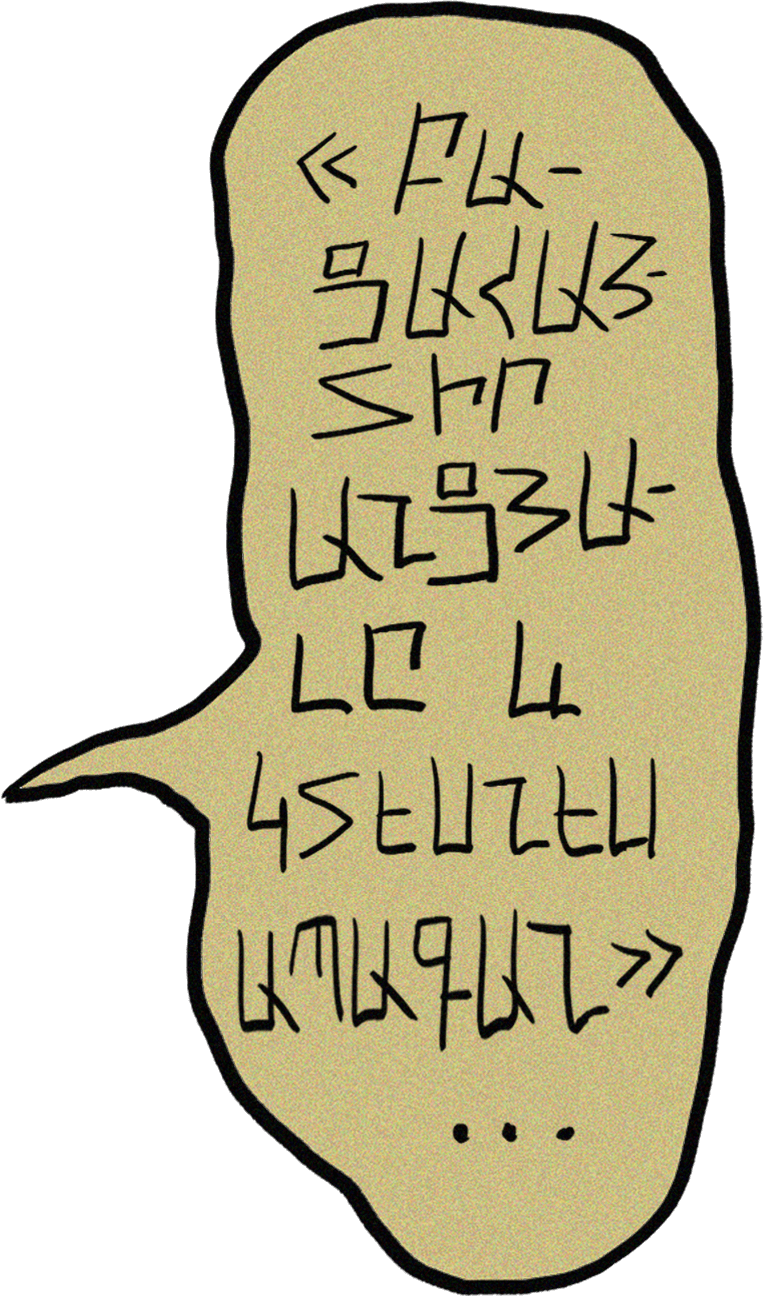 «ԲԱ-
ՑԱՀԱՅ-
ՏԻՐ
ԱՆՑՅԱ-
ԼԸ և
ԿՏԵՍՆԵՍ
ԱՊԱԳԱՆ»
...